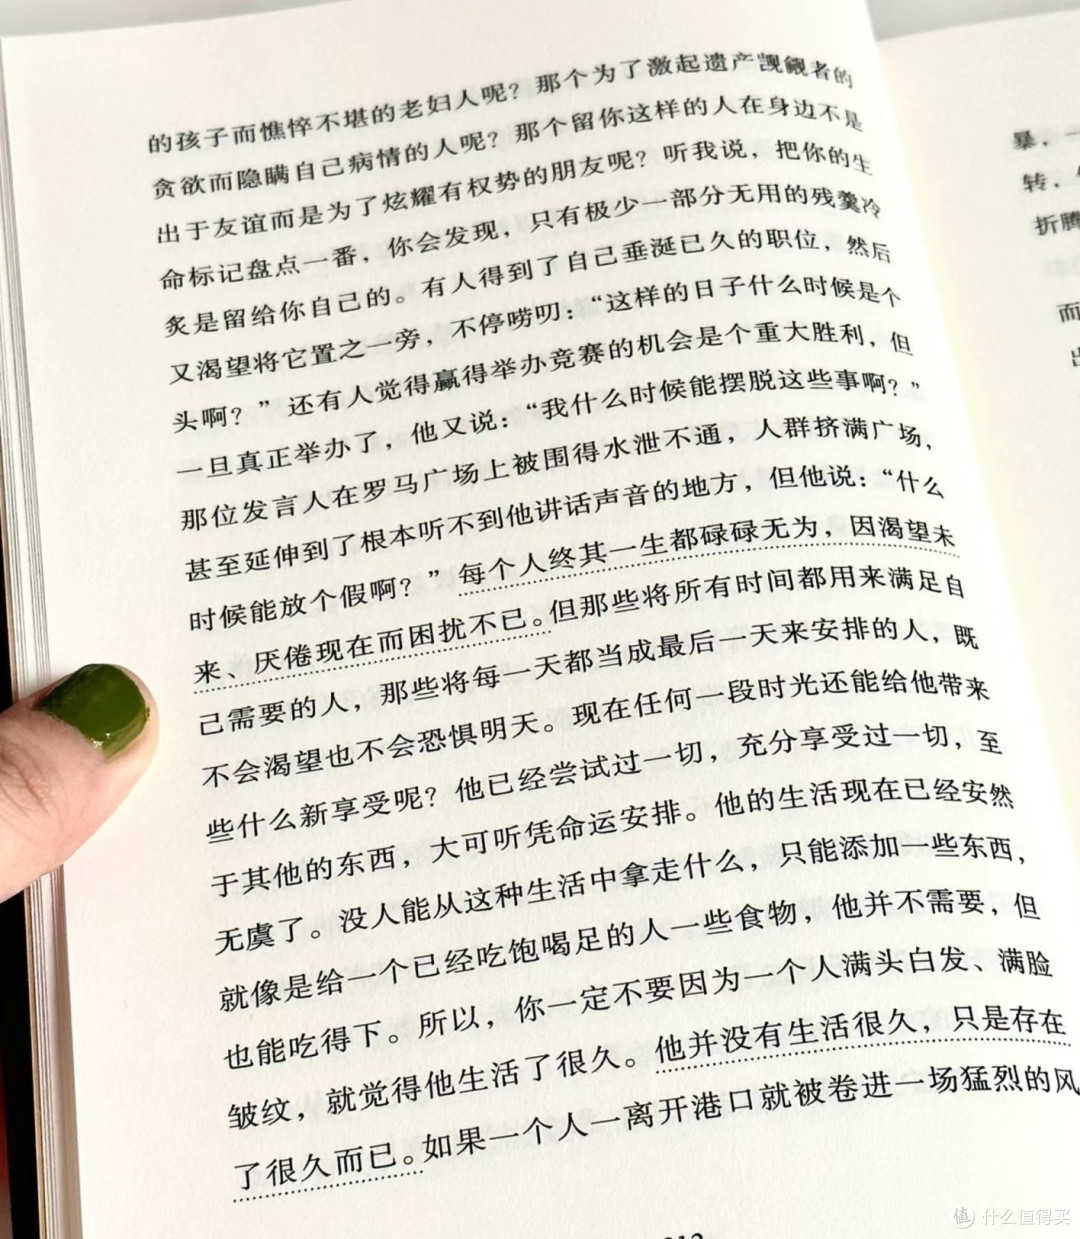 的孩子而憔悴不堪的老妇人呢？那个为了激起遗产觊觎者的
贪欲而隐瞒自己病情的人呢？那个留你这样的人在身边不是
出于友谊而是为了炫耀有权势的朋友呢？听我说，把你的生
命标记盘点一番，你会发现，只有极少一部分无用的残羹冷
炙是留给你自己的。有人得到了自己垂涎已久的职位，然后
又渴望将它置之一旁，不停唠叨：“这样的日子什么时候是个
头啊？”还有人觉得赢得举办竞赛的机会是个重大胜利，但
一旦真正举办了，他又说：“我什么时候能摆脱这些事啊？”
那位发言人在罗马广场上被围得水泄不通，人群挤满广场，
甚至延伸到了根本听不到他讲话声音的地方，但他说：“什么
时候能放个假啊？”每个人终其一生都碌碌无为，因渴望未
来、厌倦现在而困扰不已。但那些将所有时间都用来满足自
己需要的人，那些将每一天都当成最后一天来安排的人，既
不会渴望也不会恐惧明天。现在任何一段时光还能给他带来
些什么新享受呢？他已经尝试过一切，充分享受过一切，至
于其他的东西，大可听凭命运安排。他的生活现在已经安然
无虞了。没人能从这种生活中拿走什么，只能添加一些东西，
就像是给一个已经吃饱喝足的人一些食物，他并不需要，但
也能吃得下。所以，你一定不要因为一个人满头白发、满脸
皱纹，就觉得他生活了很久。他并没有生活很久，只是存在
了很久而已。如果一个人一离开港口就被卷进一场猛烈的风
暴，一
转，
折腾
而
值 什么值得买